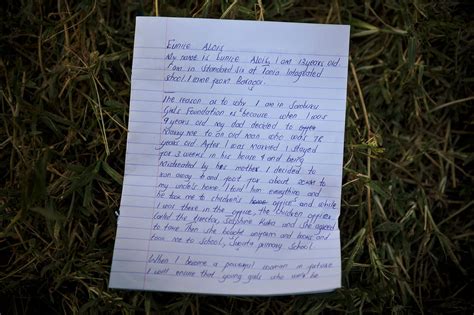 Eunice Alois
My name is Eunice Alois, I am 13 years old.
I am in Standard Six at Integrated
school. I come from Baragoi.
The reason as to why I am in Samburu
Girls Foundation is because when I was
9 years old my dad decided to
Marry me to an old man who was 78
years old. After I was married I stayed
for 3 weeks in his house and being
mistreated by his mother. I decided to
run away foot for about to
my uncle's home. I told him everything and
he took me to children's office and while
I was there in the office, the children officer
called the director, Josephine Kulea and she agreed
to take. Then she bought uniform and books and
took me to school, primary school.
When I become a powerful woman in future
I will ensure that young girls who